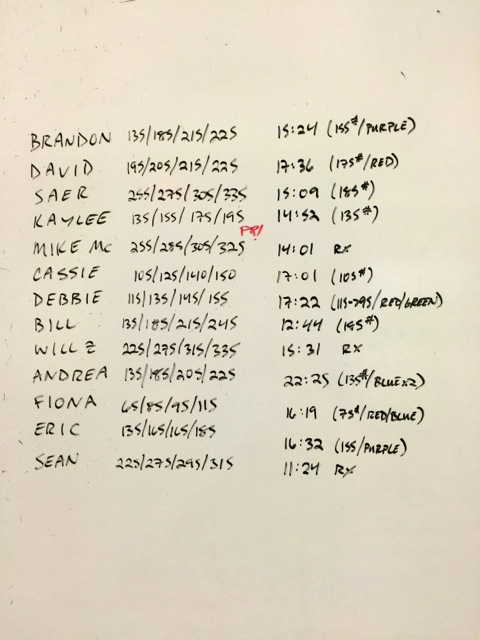 BRANDON 135/185/215/225 15:24 (155#/PURPLE)
DAVID 195/205/215/225 17:36 (175#/RED)
SAER 255/275/305/335 15:09 (185#)
KAYLEE 135/155/175/195 14:52 (135#)
PR!
MIKE MC 255/285/305/325 14:01 RX
CASSIE 105/125/140/150 17:01 (105#)
DEBBIE 115/135/145/155 17:22 (115-795/RED/GREEN)
BILL 135/185/215/245 12:44 (185#)
WILL Z 225/275/315/335 15:31 RX
ANDREA 135/185/205/225 22:25 (135#/BLUEX2)
FIONA 65/85/95/115 16:19 (75#/RED/BLUE)
ERIC 135/165/165/185 16:32 (155/PURPLE)
SEAN 225/275/295/315 11:24 RX